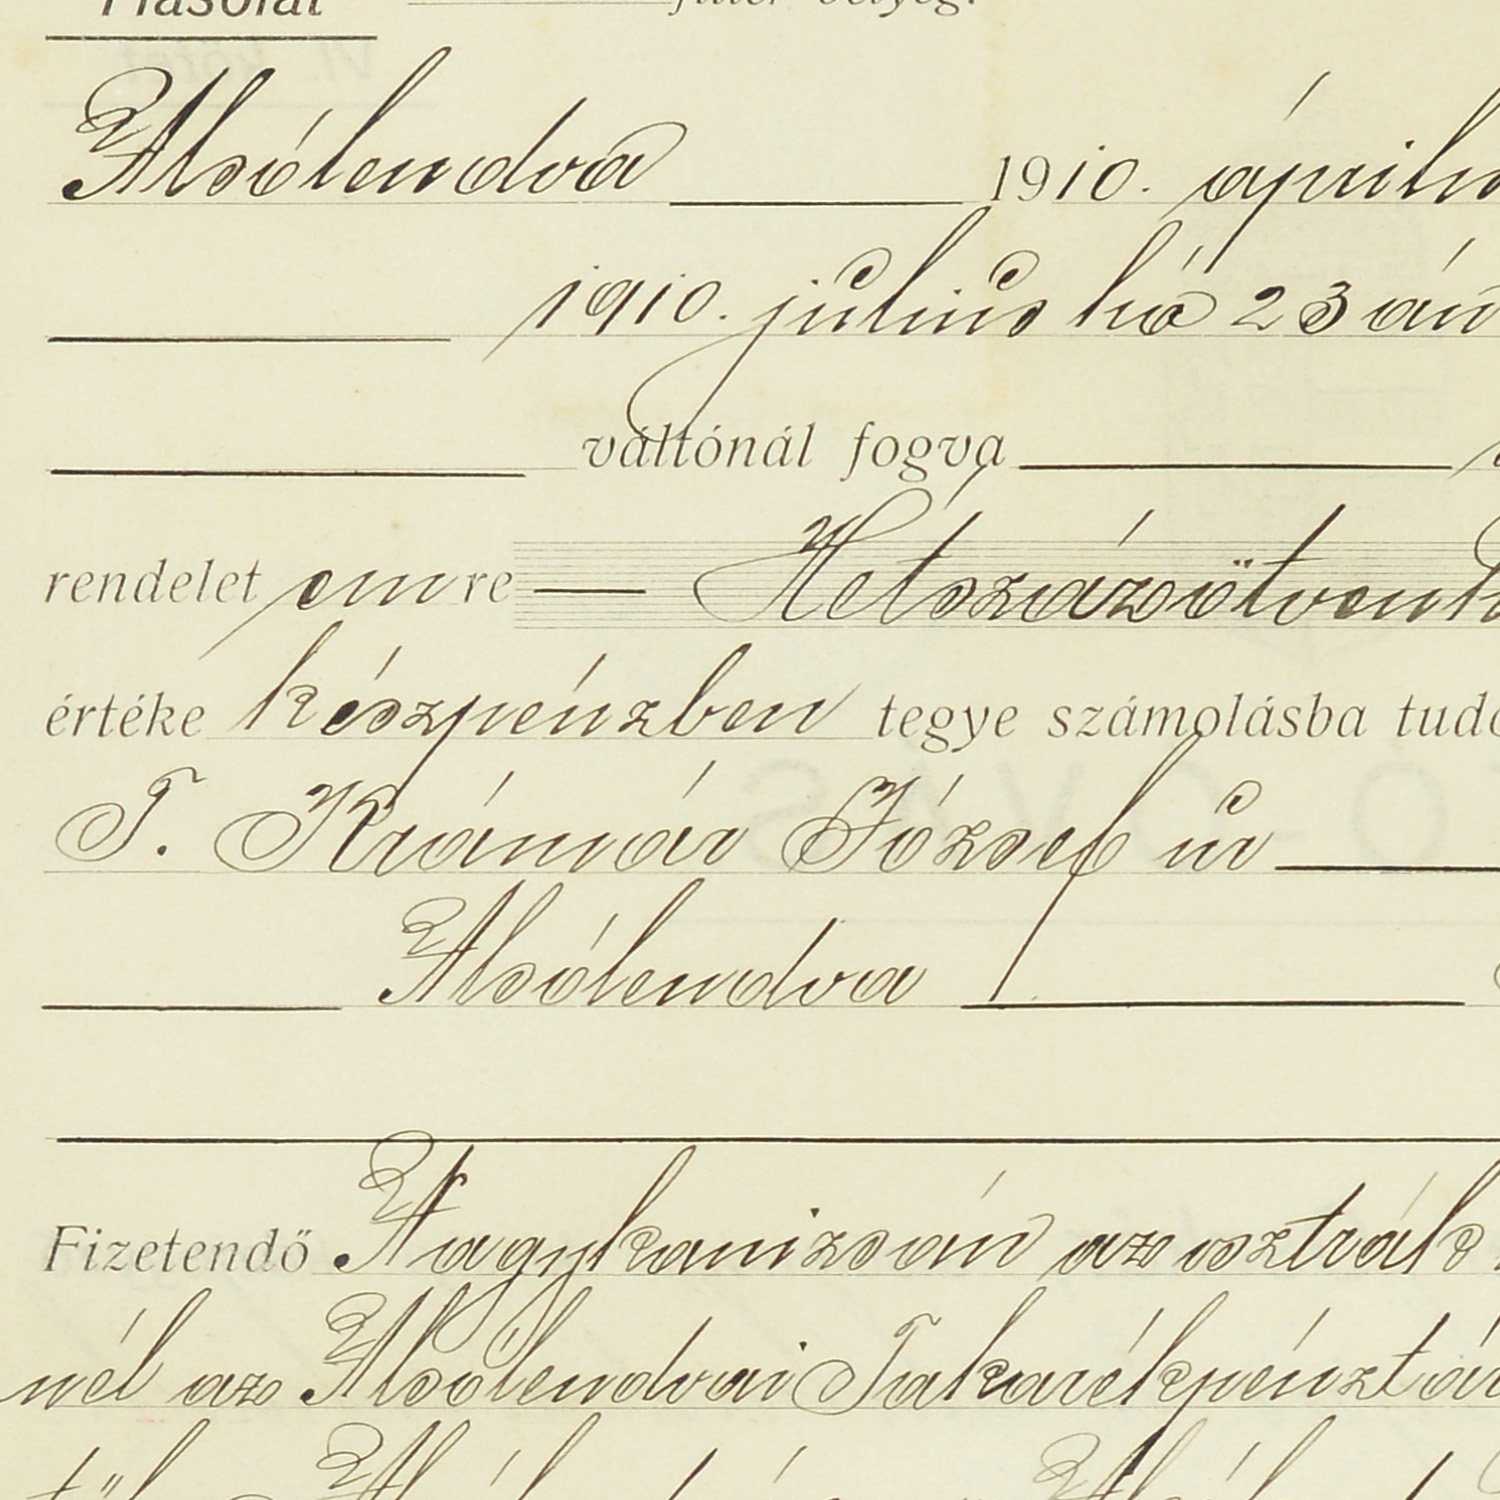 Másolat fillér bélyeg.
Alsólendva 1910. április
1910. július hó 23án
váltónál fogva
rendelet em re Hétszázötven
értéke készpénzben tegye számolásba
T. Krámár József úr
Alsólendva
Fizetendő Nagykanizsán az osztrák
nél az Alsólendvai Takarékpénztár